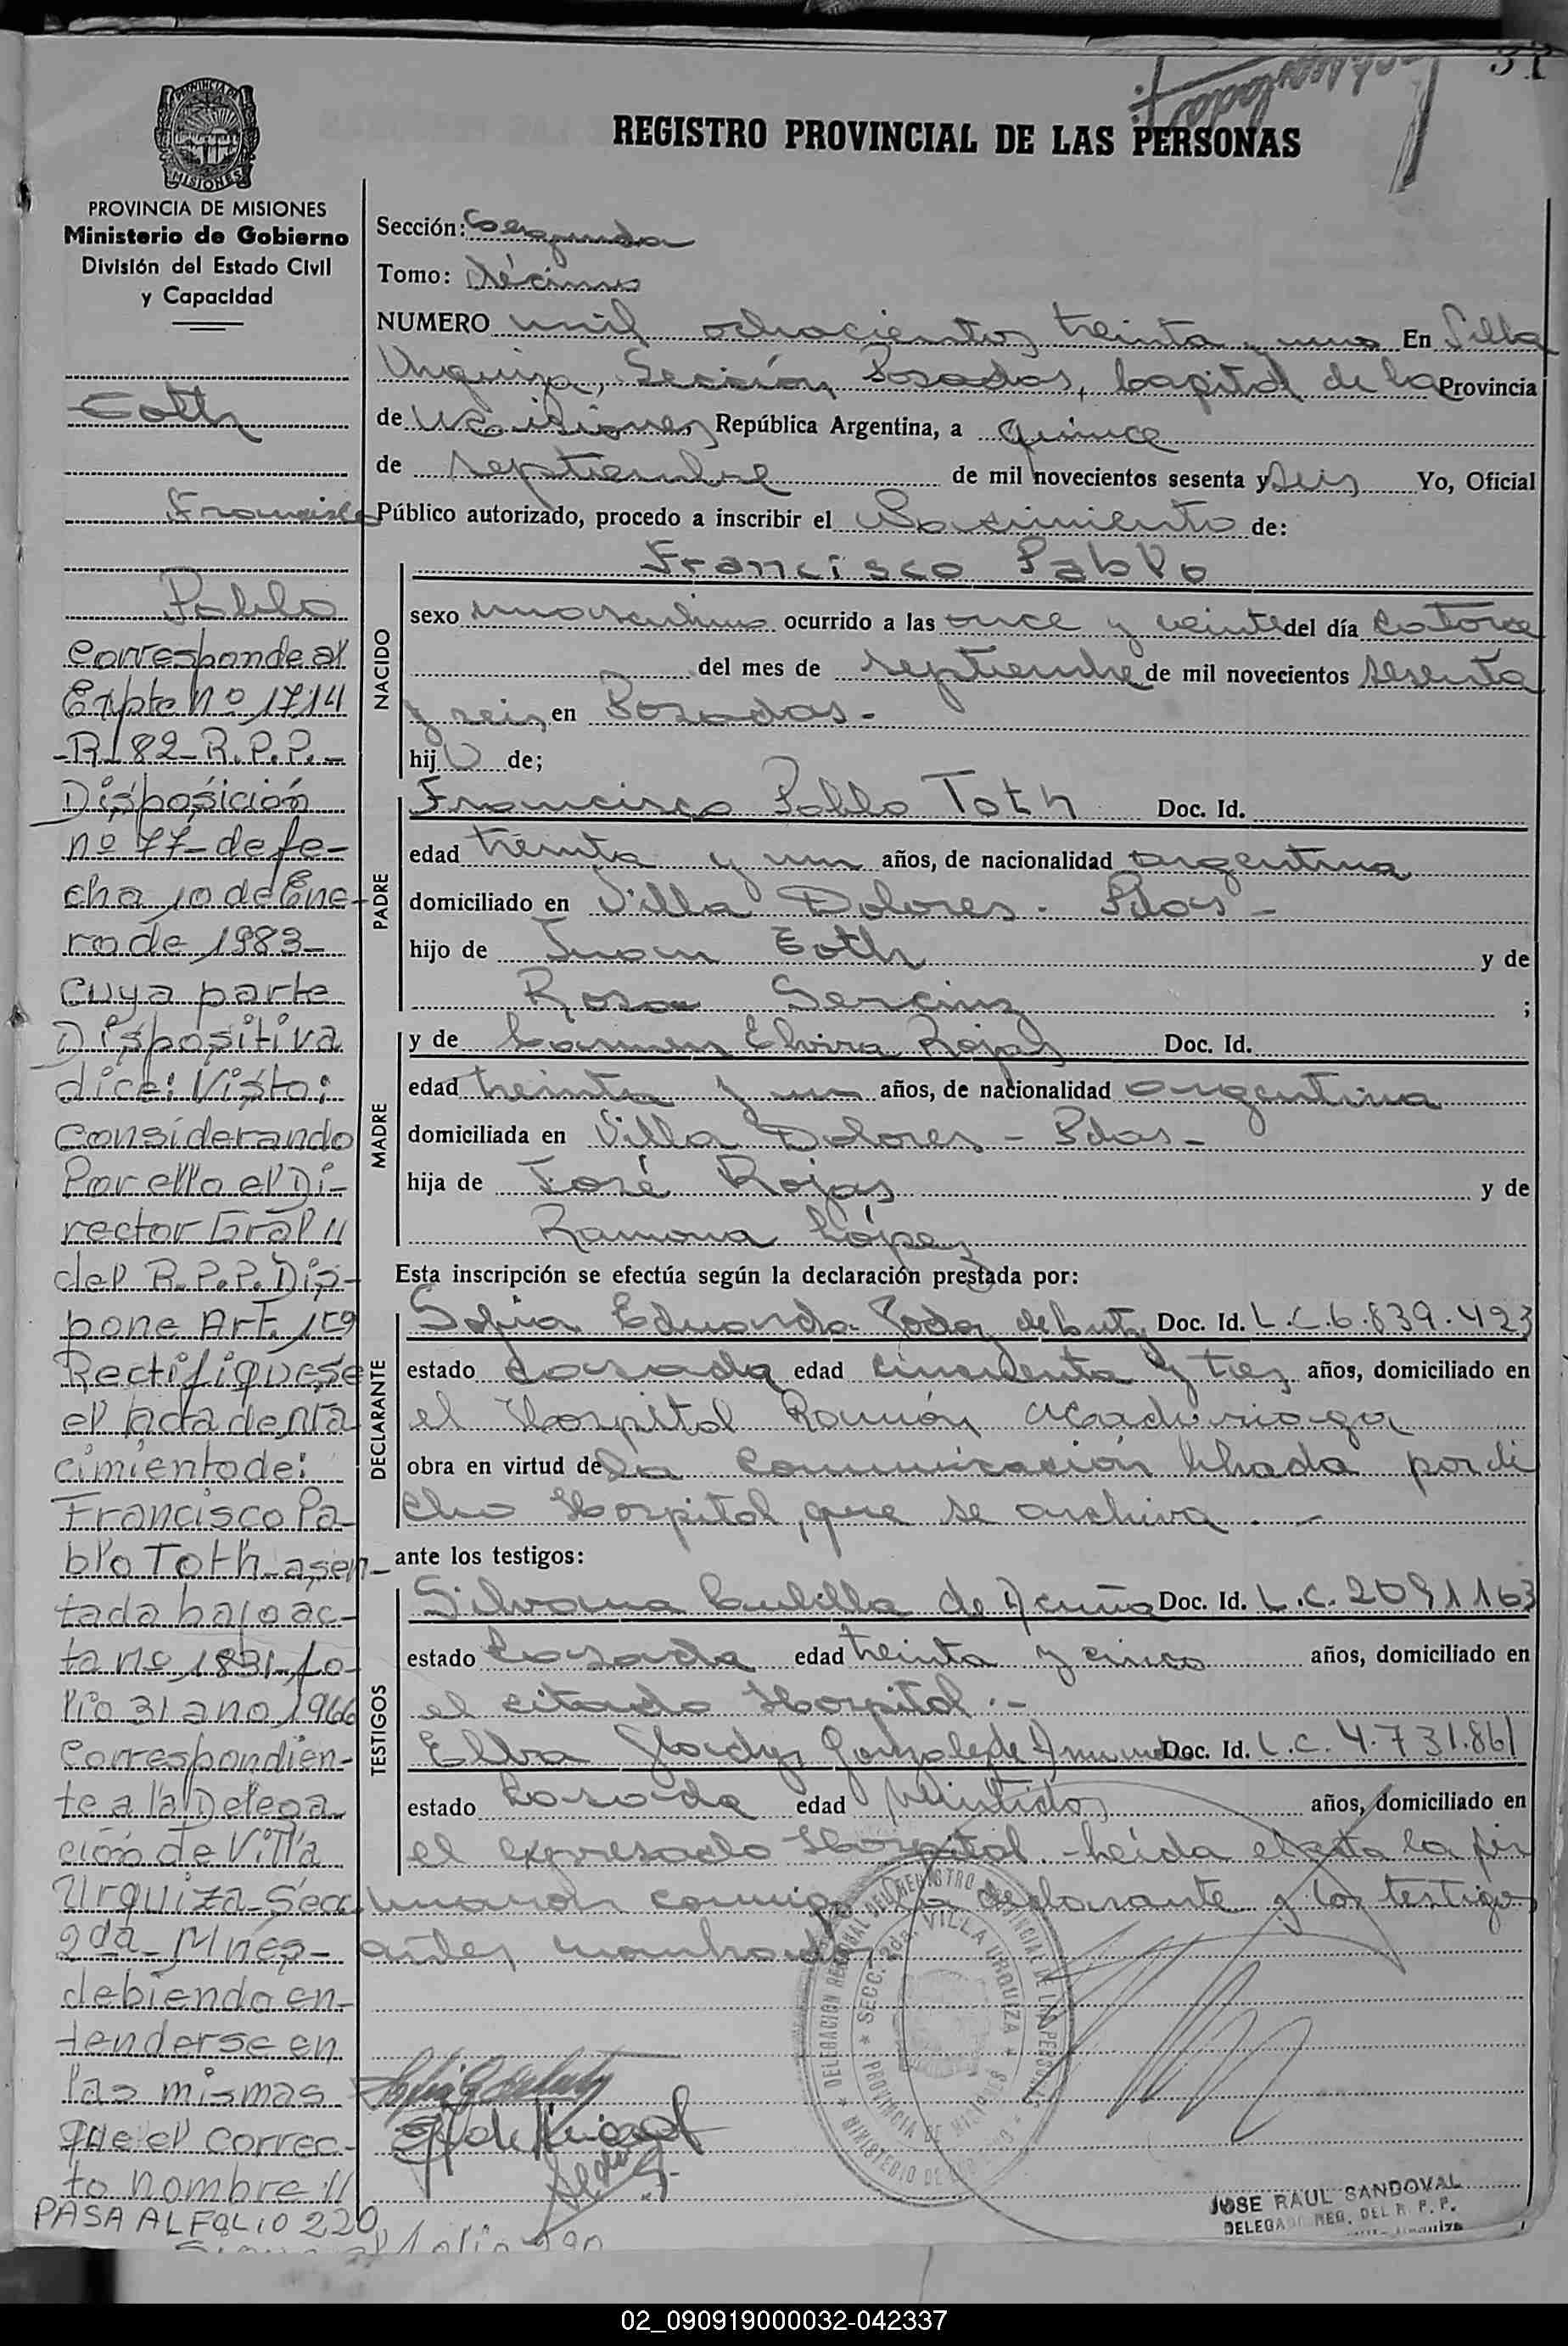 31
REGISTRO PROVINCIAL DE LAS PERSONAS
PROVINCIA DE MISIONES
Ministerio de Gobierno
División del Estado Civil
y Capacidad
Toth
Francisco
Pablo
Corresponde al
Expte nº 1714
-R-82-R.P.P.-
Disposición
nº 77-de fe-
cha 10 de Ene-
ro de 1983-
cuya parte
Dispositiva
dice: Visto:
Considerando
Por ello el Di-
rector Gral //
del R.P.P. Dis-
pone Art. 1º
Rectifíquese
el acta de na
cimiento de:
Francisco Pa-
blo Toth-asen-
tada bajo ac-
ta nº 1831-fo-
lio 31 ano 1966
Correspondien-
te a la Delega-
ción de Villa
Urquiza-Secc.
2da-Mnes-
debiendo en-
tenderse en
las mismas
que el correc-
to nombre //
PASA AL FOLIO 220
Sección: Segunda
Tomo: Décimo
NUMERO mil ochocientos treinta y uno En Villa
Urquiza, Sección Posadas, Capital de la Provincia
de Misiones, República Argentina, a quince
de septiembre de mil novecientos sesenta y seis Yo, Oficial
Público autorizado, procedo a inscribir el Nacimiento de:
NACIDO
Francisco Pablo
sexo masculino ocurrido a las once y veinte del día catorce
del mes de septiembre de mil novecientos sesenta
y seis, en Posadas.-
hijo de;
PADRE
Francisco Pablo Toth Doc. Id.
edad treinta y un años, de nacionalidad argentina
domiciliado en Villa Dolores - Pdas -
hijo de Juan Toth y de
Rosa ;
MADRE
y de Carmen Elvira Rojas Doc. Id.
edad treinta y un años, de nacionalidad argentina
domiciliada en Villa Dolores - Pdas -
hija de José Rojas y de
Ramona López
Esta inscripción se efectúa según la declaración prestada por:
DECLARANTE
Sofia Eduarda de Doc. Id. L.C.6.839.423
estado casada edad cincuenta y tres años, domiciliado en
el Hospital Ramón Madariaga
obra en virtud de la comunicación librada por di
cho Hospital, que se archiva . -
ante los testigos:
TESTIGOS
Silvana de Acuña Doc. Id. L.C. 2091163
estado casada edad treinta y cinco años, domiciliado en
el citado Hospital.-
Elba Gladys de Doc. Id. L.C. 4.731.861
estado casada edad veintidos años, domiciliado en
el expresado Hospital.-Leída el acta la fir
maron conmigo la declarante y los testigos
antes nombrados
DELEGACION REGIONAL DEL REGISTRO PROVINCIAL DE LAS PERSONAS
SECC. 2da. VILLA URQUIZA
PROVINCIA DE MISIONES
MINISTERIO DE GOBIERNO
JOSE RAUL SANDOVAL
DELEGADO REG. DEL R. P. P.
02_090919000032-042337